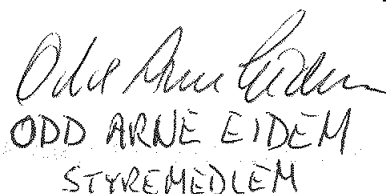 Odd Arne Eidem
ODD ARNE EIDEM
STYREMEDLEM